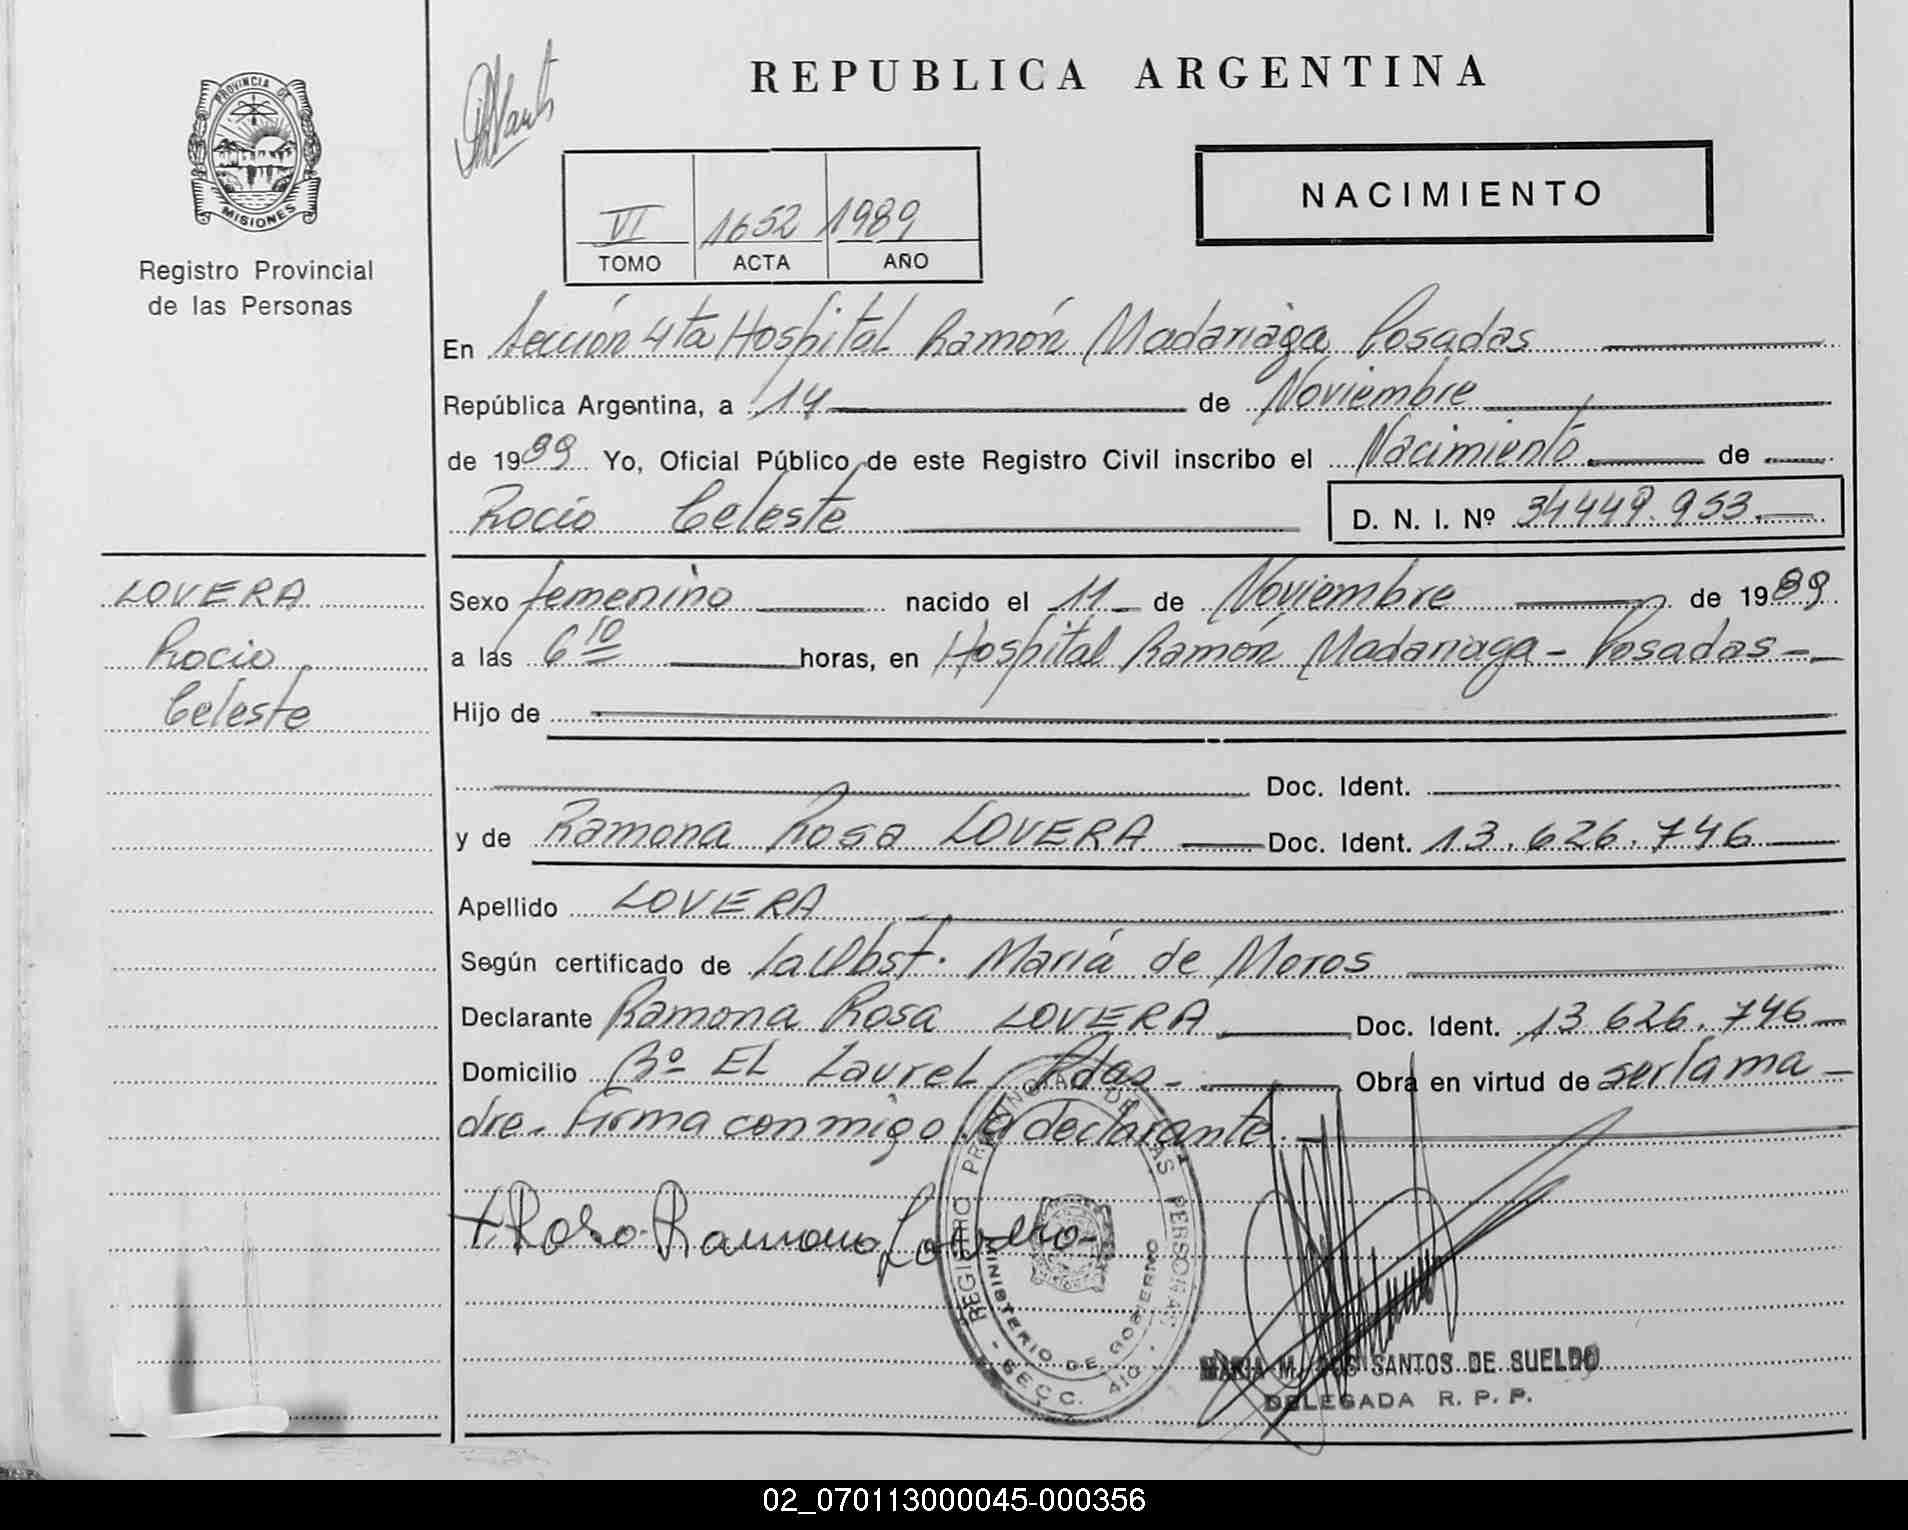 PROVINCIA DE
MISIONES
Registro Provincial
de las Personas
REPUBLICA ARGENTINA
NACIMIENTO
VI 1652 1989
TOMO ACTA AÑO
En Sección 4ta Hospital Ramón Madariaga Posadas
República Argentina, a 14 de Noviembre
de 1989 Yo, Oficial Público de este Registro Civil inscribo el Nacimiento de
Rocio Celeste D. N. I. Nº 34449.953
LOVERA
Rocio
Celeste
Sexo femenino nacido el 11 de Noviembre de 1989
a las 6 10 horas, en Hospital Ramón Madariaga - Posadas -
Hijo de
Doc. Ident.
y de Ramona Rosa LOVERA Doc. Ident. 13.626.746
Apellido LOVERA
Según certificado de la Obst. Mariá de Moros
Declarante Ramona Rosa LOVERA Doc. Ident. 13.626.746
Domicilio Bº EL Laurel Pdas - Obra en virtud de ser la ma
dre. Firma conmigo la declarante.
Roso Ramona Lovera
REGISTRO PROVINCIAL DE LAS PERSONAS
MINISTERIO DE GOBIERNO
SECC. 4ta.
MARIA M. DOS SANTOS DE SUELDO
DELEGADA R. P. P.
02_070113000045-000356